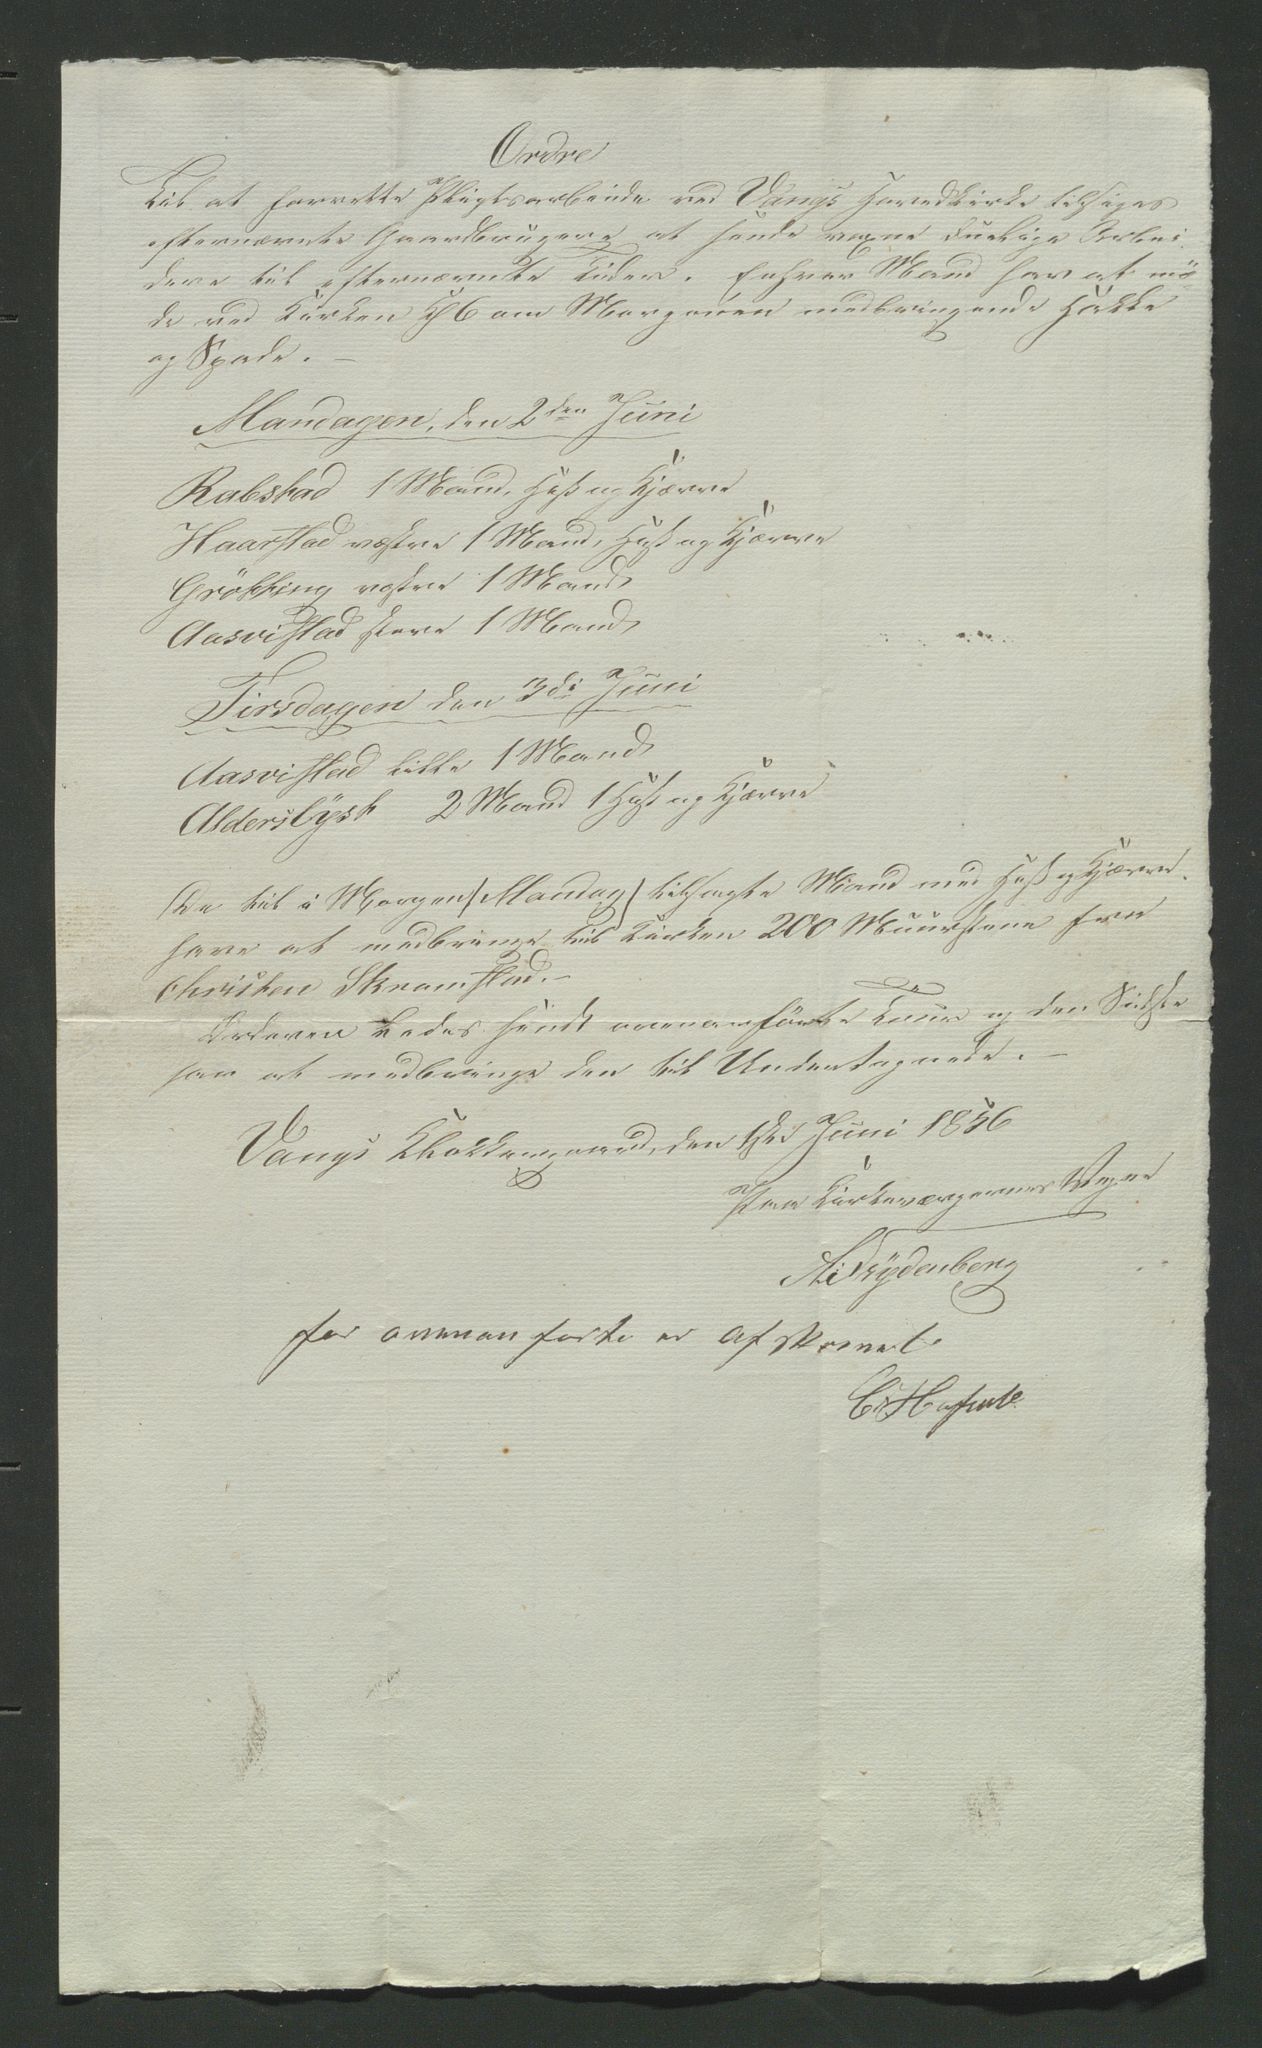 Ordre
Til at forrette Pligtsarbeide ved Vangs Hovedkirke tilsiges
efternævnte Gaardbrugere at sende voxne duelige Arbei-
dere til efternævnte Tider. Enhver Mand har at mö-
de ved Kirken Kl 6 om Morgenen medbringende Hakke
og Spade. –
Mandagen, den 2den Juni
Rabstad 1 Mand, Hest og Kjærre
Haarstad vestre 1 Mand, Hest og Kjærre
Gröhting vestre 1 Mand,
Aasvistad store 1 Mand,
Tirsdagen den 3die Juni
Aasvistad lille 1 Mand,
Alderslyst 2 Mand 1 Hest og Kjærre
De til i Morgen (Mandag) tilsagte Mænd med Hest og Kjærre
have at medbringe til Kirken 200 Muurstene fra
Christen Skramstad. –
Orderen bedes sendt ovenanförte Tour og den Sidste
har at medbringe den til Undertegnede. –
Vangs Klokkergaard, den 1ste Juni 1856
Paa Kirkeværgernes Vegne
A. Frydenberg
for ovenan forte er af Skrevet.